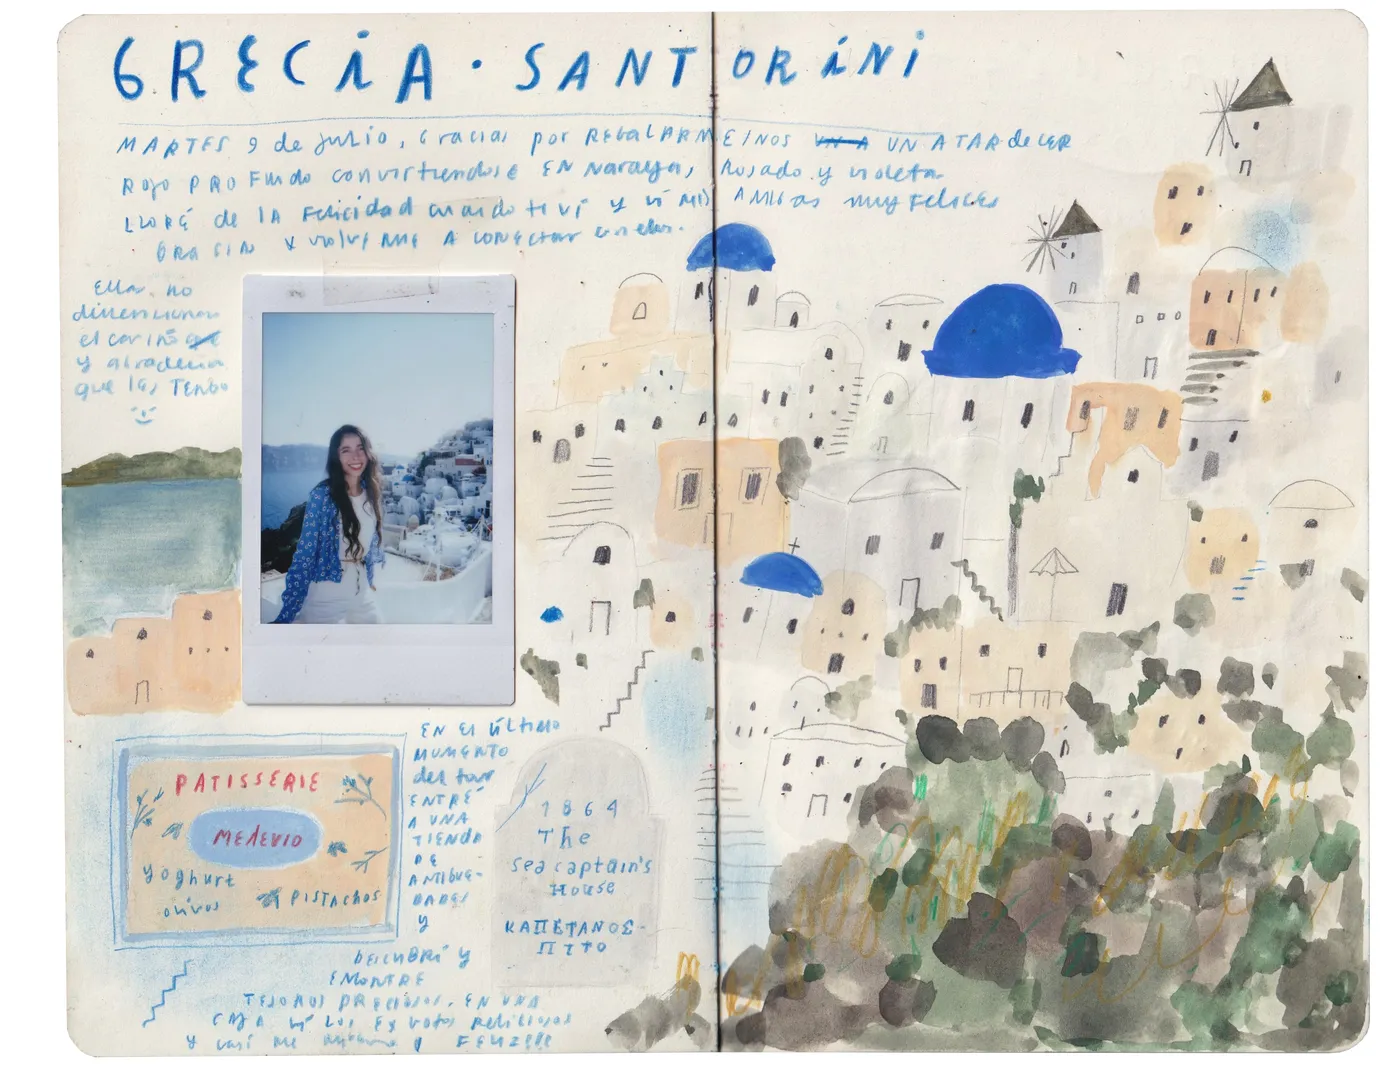 GRECIA · SANTORINI
MARTES 9 de julio, Gracias por REGALARNEINOS UN ATARdeCER
ROJO PROFUNDO convirtiendose EN Naranja, Rosado y violeta
LLORÉ de lA Felicidad cuando te vi y vi MIS AMIGAS muy Felices
GRACIN x volvi ME A CONECTAR con ellas.
Ellas no
dimensionan
el cariño que
y
que les TENGO
PATISSERIE
MEΛEVIO
yoghurt
olivos
PISTACHOS
EN EL ÚLTIMO
MOMENTO
del tour
ENTRÉ
A UNA
TIENDA
DE
ANTIGUE-
DADES
y
DESCUBRÍ y
ENCONTRÉ
TESOROS PRECIOSOS. EN UNA
CAJA VI LOS EX votos Religiosos
y casi me
1864
The
sea captain's
House
ΚΑΠΕΤΑΝΟΣ-
ΠΙΤΟ